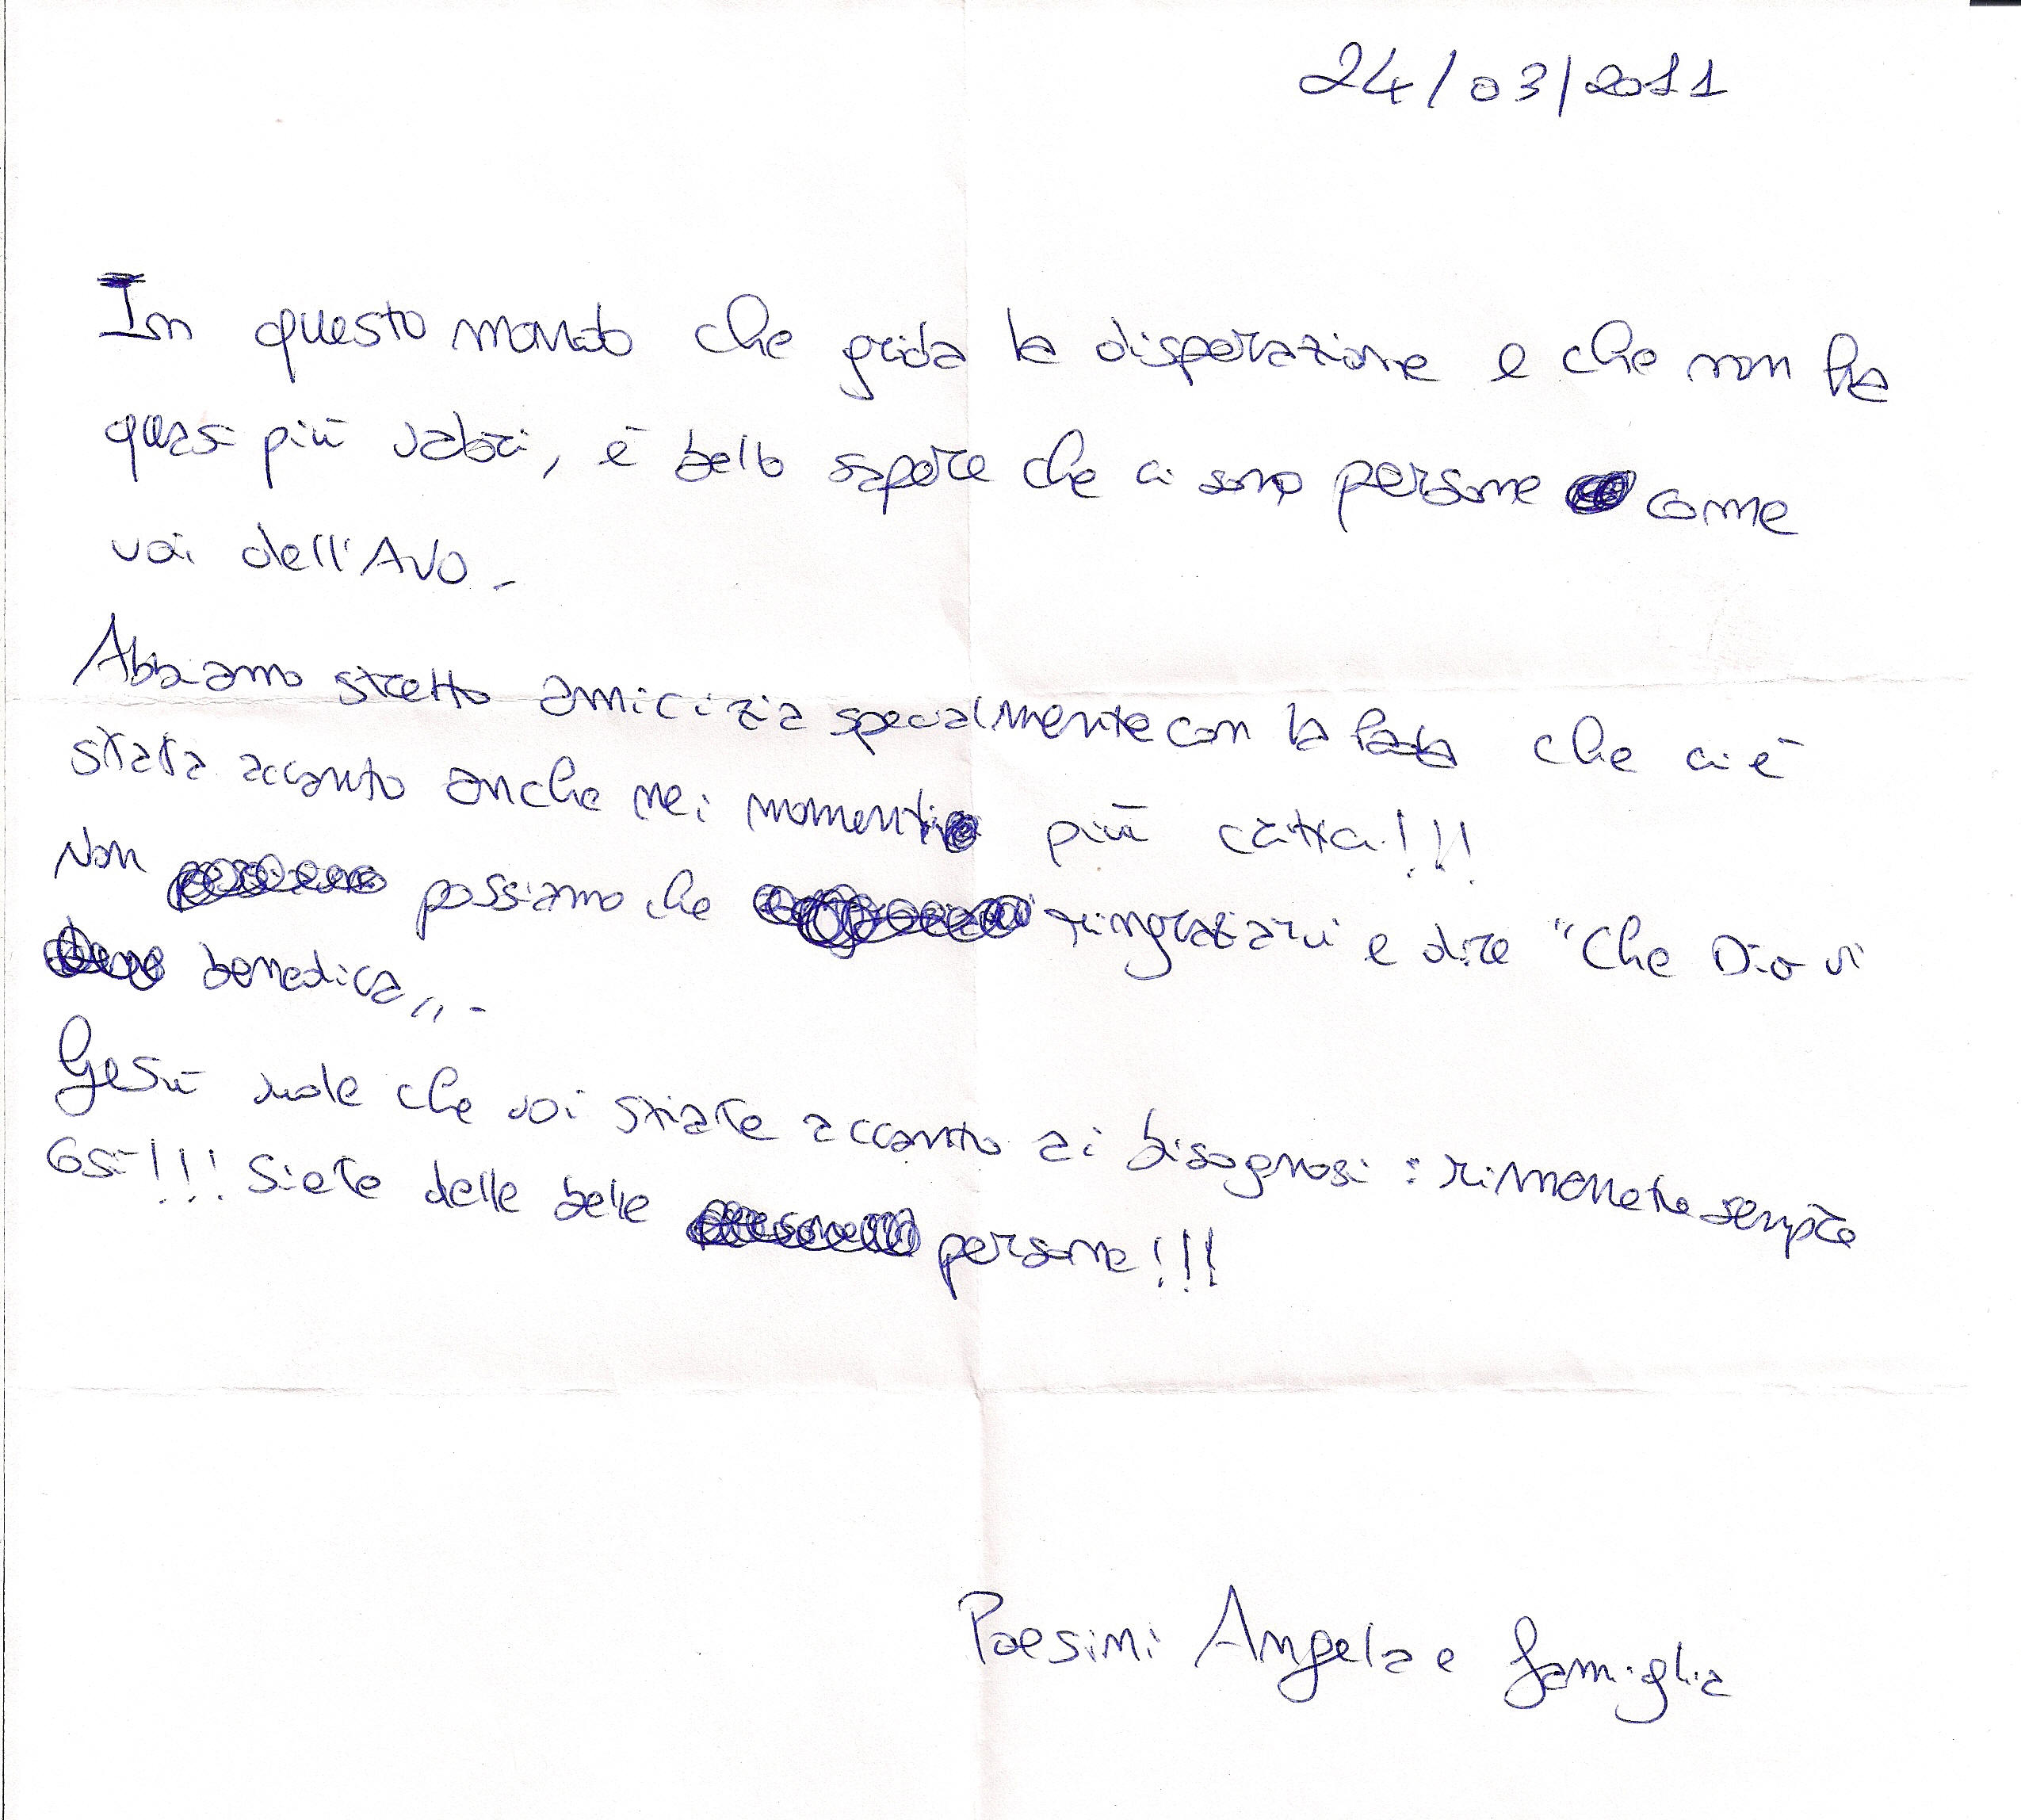 24/03/2011
In questo mondo che grida la disperazione e che non ha
quasi più valori, è bello sapere che ci sono persone come
voi dell'AVO.
Abbiamo stretto amicizia specialmente con la Paola che ci è
stata accanto anche nei momenti più critici!!!
Non possiamo che ringraziarvi e dire "Che Dio vi
benedica".
Gesù vuole che voi stiate accanto ai bisognosi: rimanete sempre
così!!! Siete delle belle persone!!!
Paesini Angela e famiglia